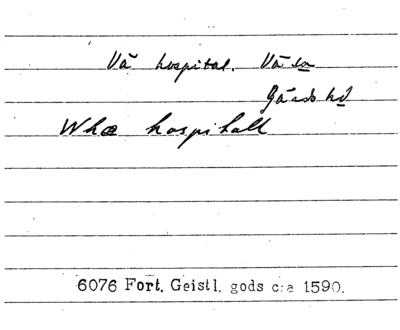 Vå hospital. Vå sn
Gärds hd
Whæ hospitall
6076 Fort. Geistl. gods c:a 1590.